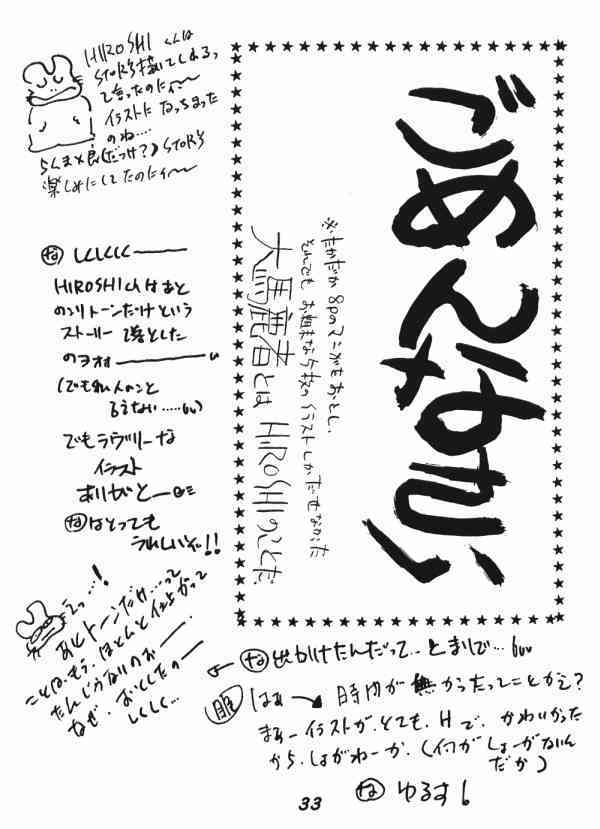 ごめんなさい
※たかだか8pのマンガもおとし、
それでも お粗末な5枚のイラストしかだせなかった
大馬鹿者とは HIROSHIのことだ
HIROSHIくんは
て言ったのにィ〜
イラストに なっちまった
のね‥‥
楽しみにしてたのにィ〜
な しくしくしく――
HIROSHIくんはあと
のこりトーンだけという
ストーリー で落とした
のヨオォ――
(でも 人のこと
言えない……)
でもラヴリーな
イラスト
ありがと―
な はとっても
うれしいぞ!!
えっ…!
あとトーンだけ…って
ことは、もう、ほとんど
たんじゃないのぉ――
なぜ、おとしたの――
しくしく…
な 出かけたんだって… とまりで…
はぁ → 時間が無かったってことかえ?
まぁーイラストが、とても、Hで、かわいかった
から、しょがねーか、(何がしょーがないん
だか)
な ゆるす
33